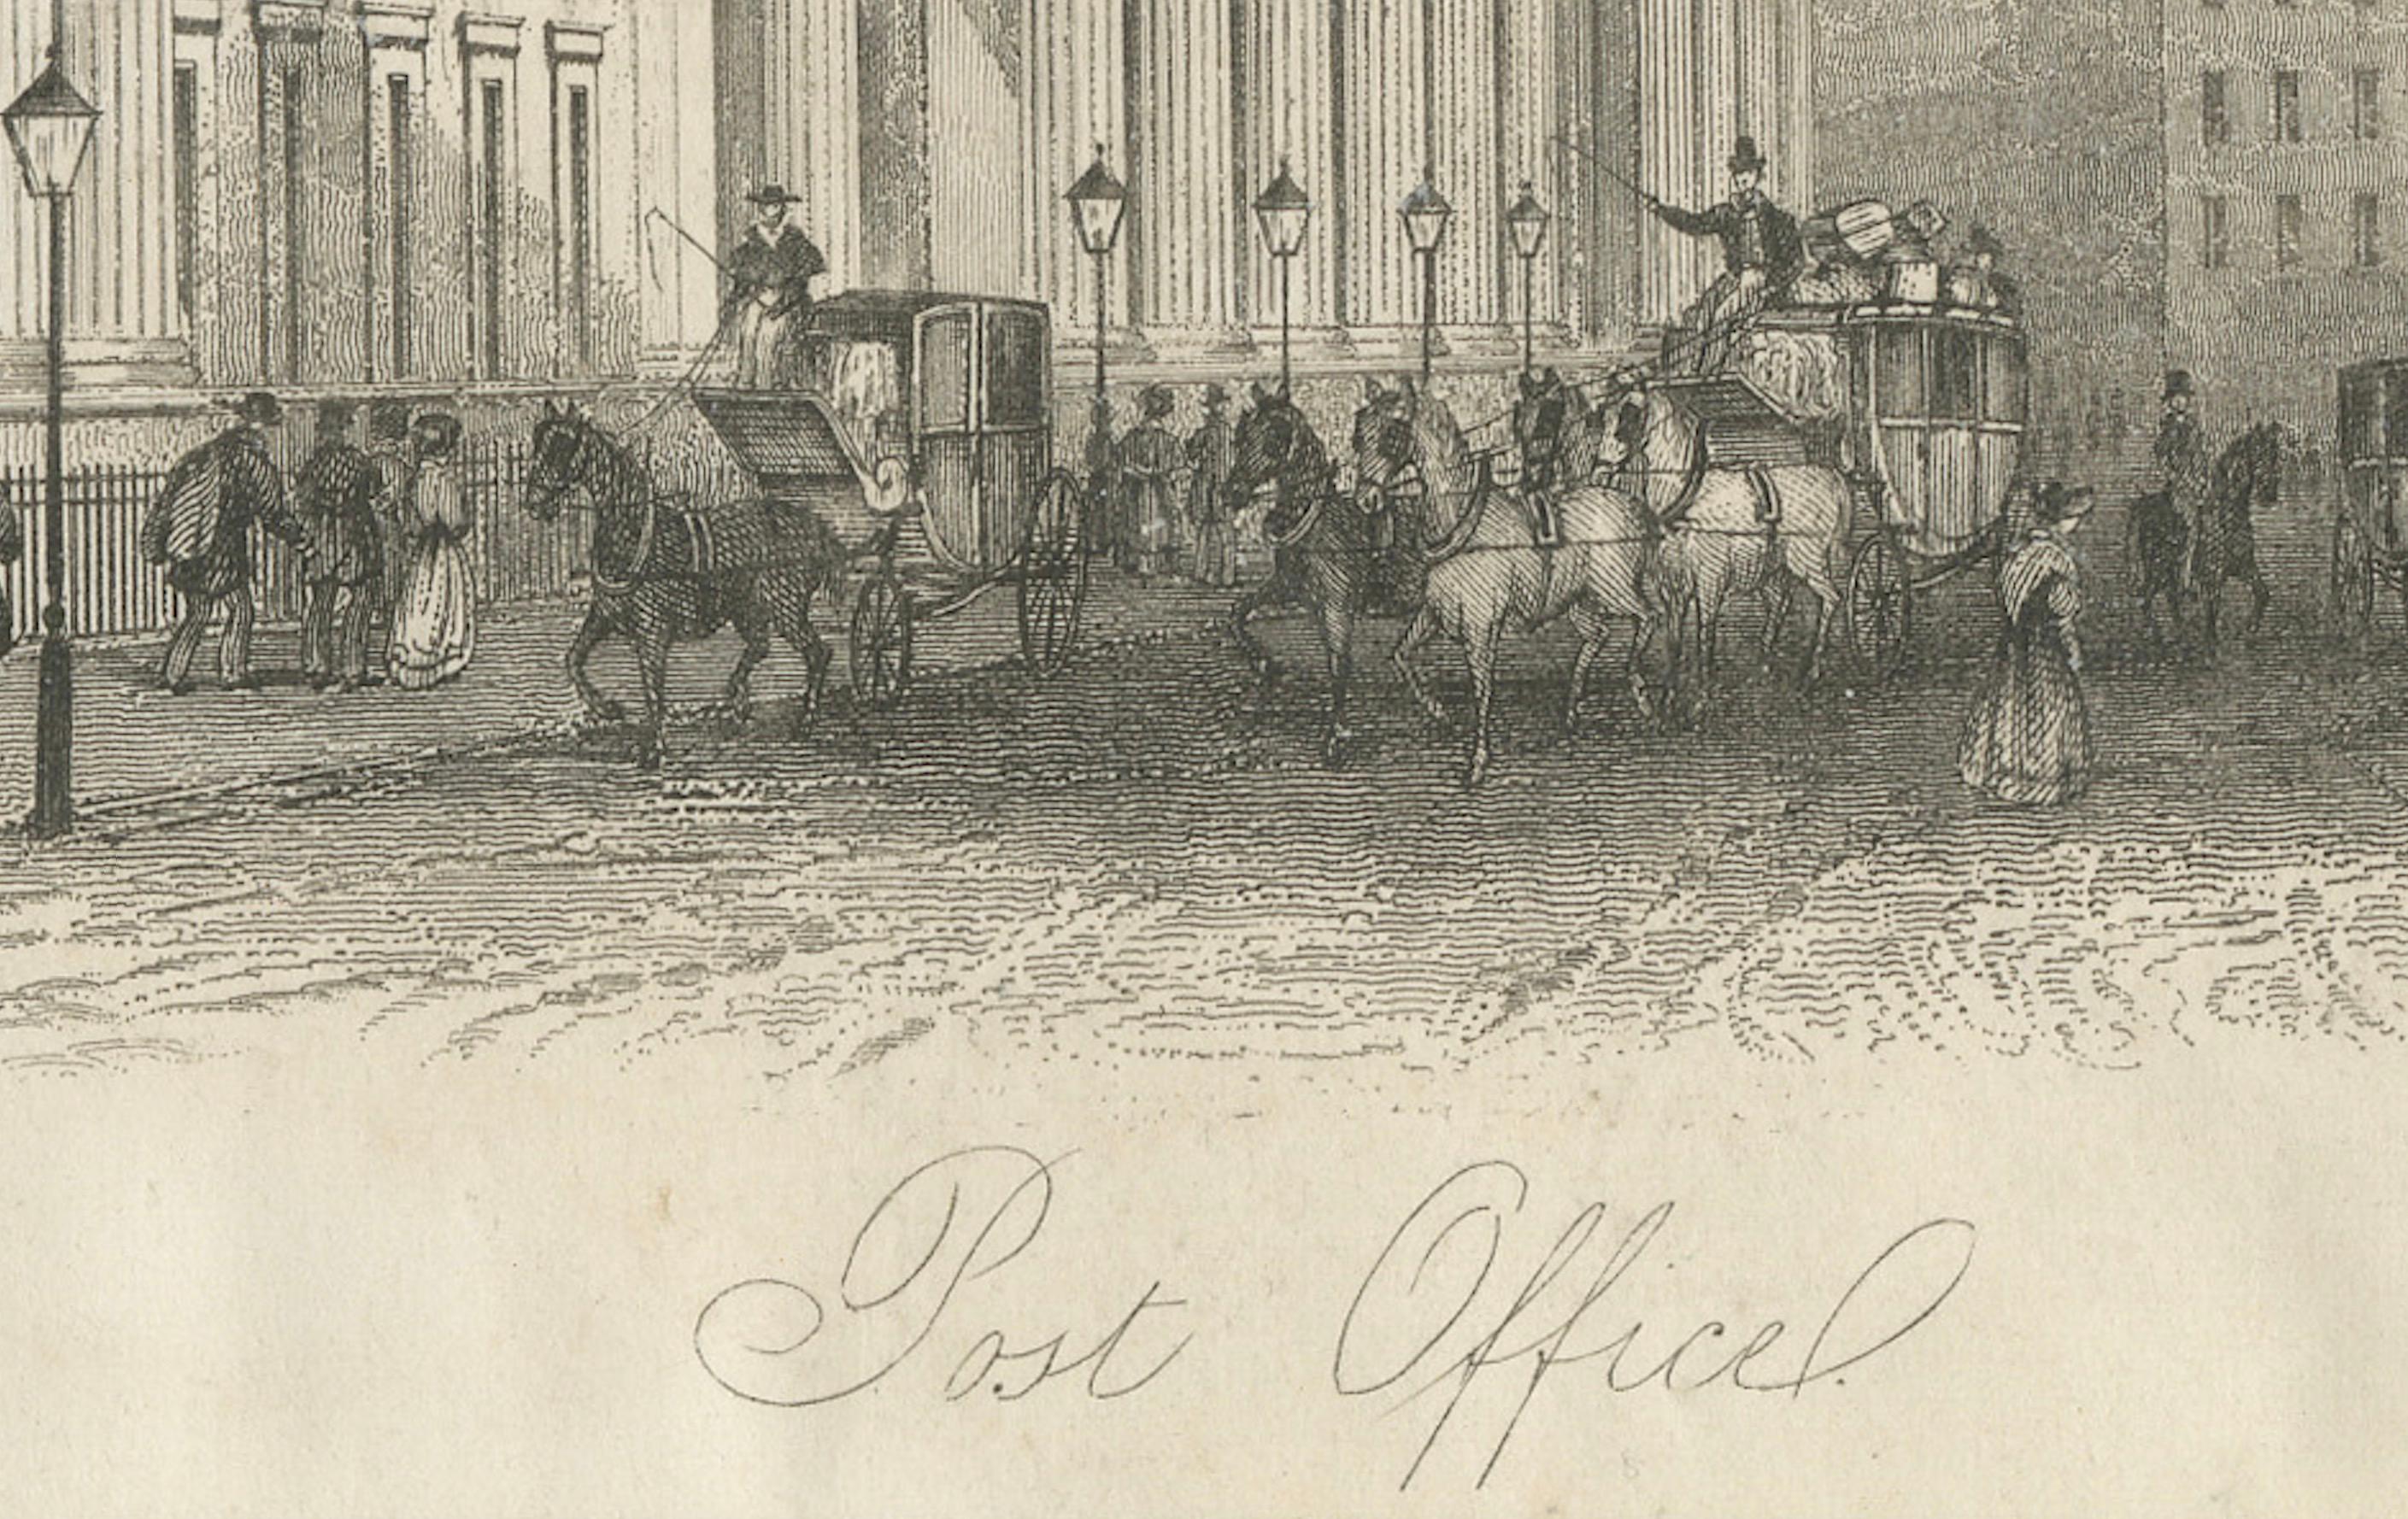 Post Office.